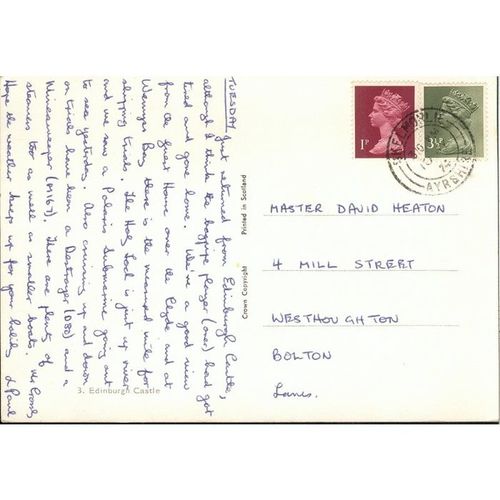 TUESDAY Just returned from Edinburgh Castle,
although I think the bagpipe player (over) had got
tired and gone home. We've a good view
from the Guest Home over the Clyde and at
Wemyss Bay there is the measured mile for
shipping trials. The Holy Loch is just up river
and we saw a Polaris Submarine going out
to sea yesterday. Also cruising up and down
on trials have been a Destroyer (D80) and a
Minesweeper (M167). There are plenty of
steamers too as well as smaller boats.
Hope the weather keeps up for your holiday & Paul
3. Edinburgh Castle
Crown Copyright Printed in Scotland
1P
3½P
AYRSHIRE
MASTER DAVID HEATON
4 MILL STREET
WESTHOUGHTON
BOLTON
Lancs.